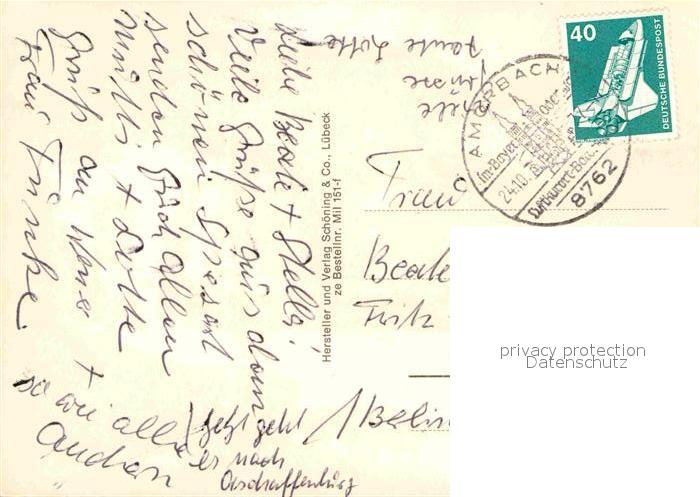 Liebe Beate + Stella!
Viele Grüße aus dem
schönen Spessart
senden Euch allen
Mutti + Lotte
Gruß an +
Frau Funke.
so wie alle
andern
jetzt geht
es nach
Aschaffenburg
Viele
Grüsse
Tante Lotte
Hersteller und Verlag Schöning & Co., Lübeck
ze Bestellnr. Mil 151-f
40
DEUTSCHE BUNDESPOST
AMORBACH
Im Bayer.
24.10.
Luftkurort
8762
Frau
Beate
Fritz
1 Berlin
privacy protection
Datenschutz